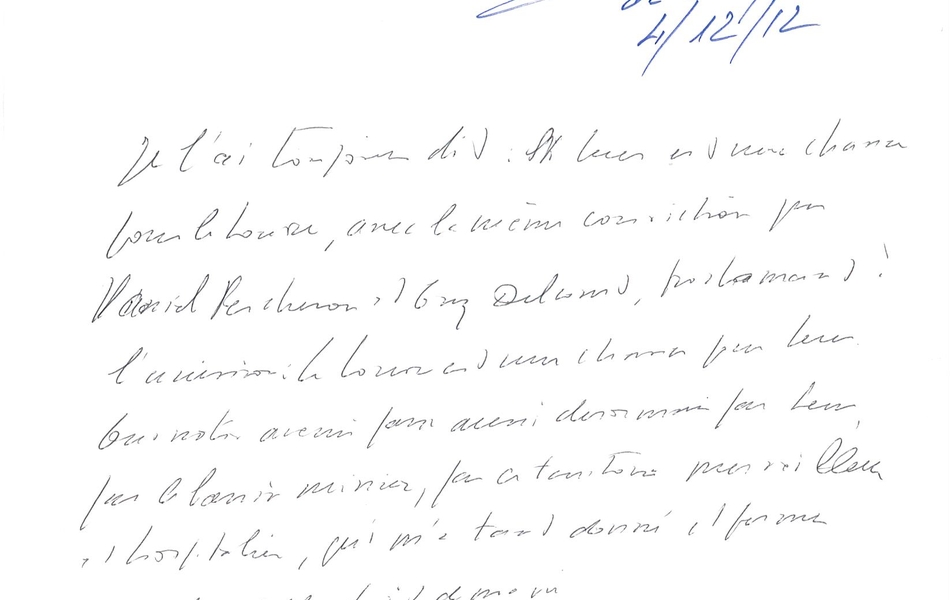 4/12/12
Je l'ai toujours dit : Si Lens est une chance
pour le Louvre, avec la même conviction que
Daniel Percheron et Guy Delcourt, proclamant à
l'unisson : le Louvre est une chance pour Lens.
Oui notre avenir passe aussi désormais par Lens,
par le bassin minier, par ce territoire merveilleux
et hospitalier, qui m'a tant donné et